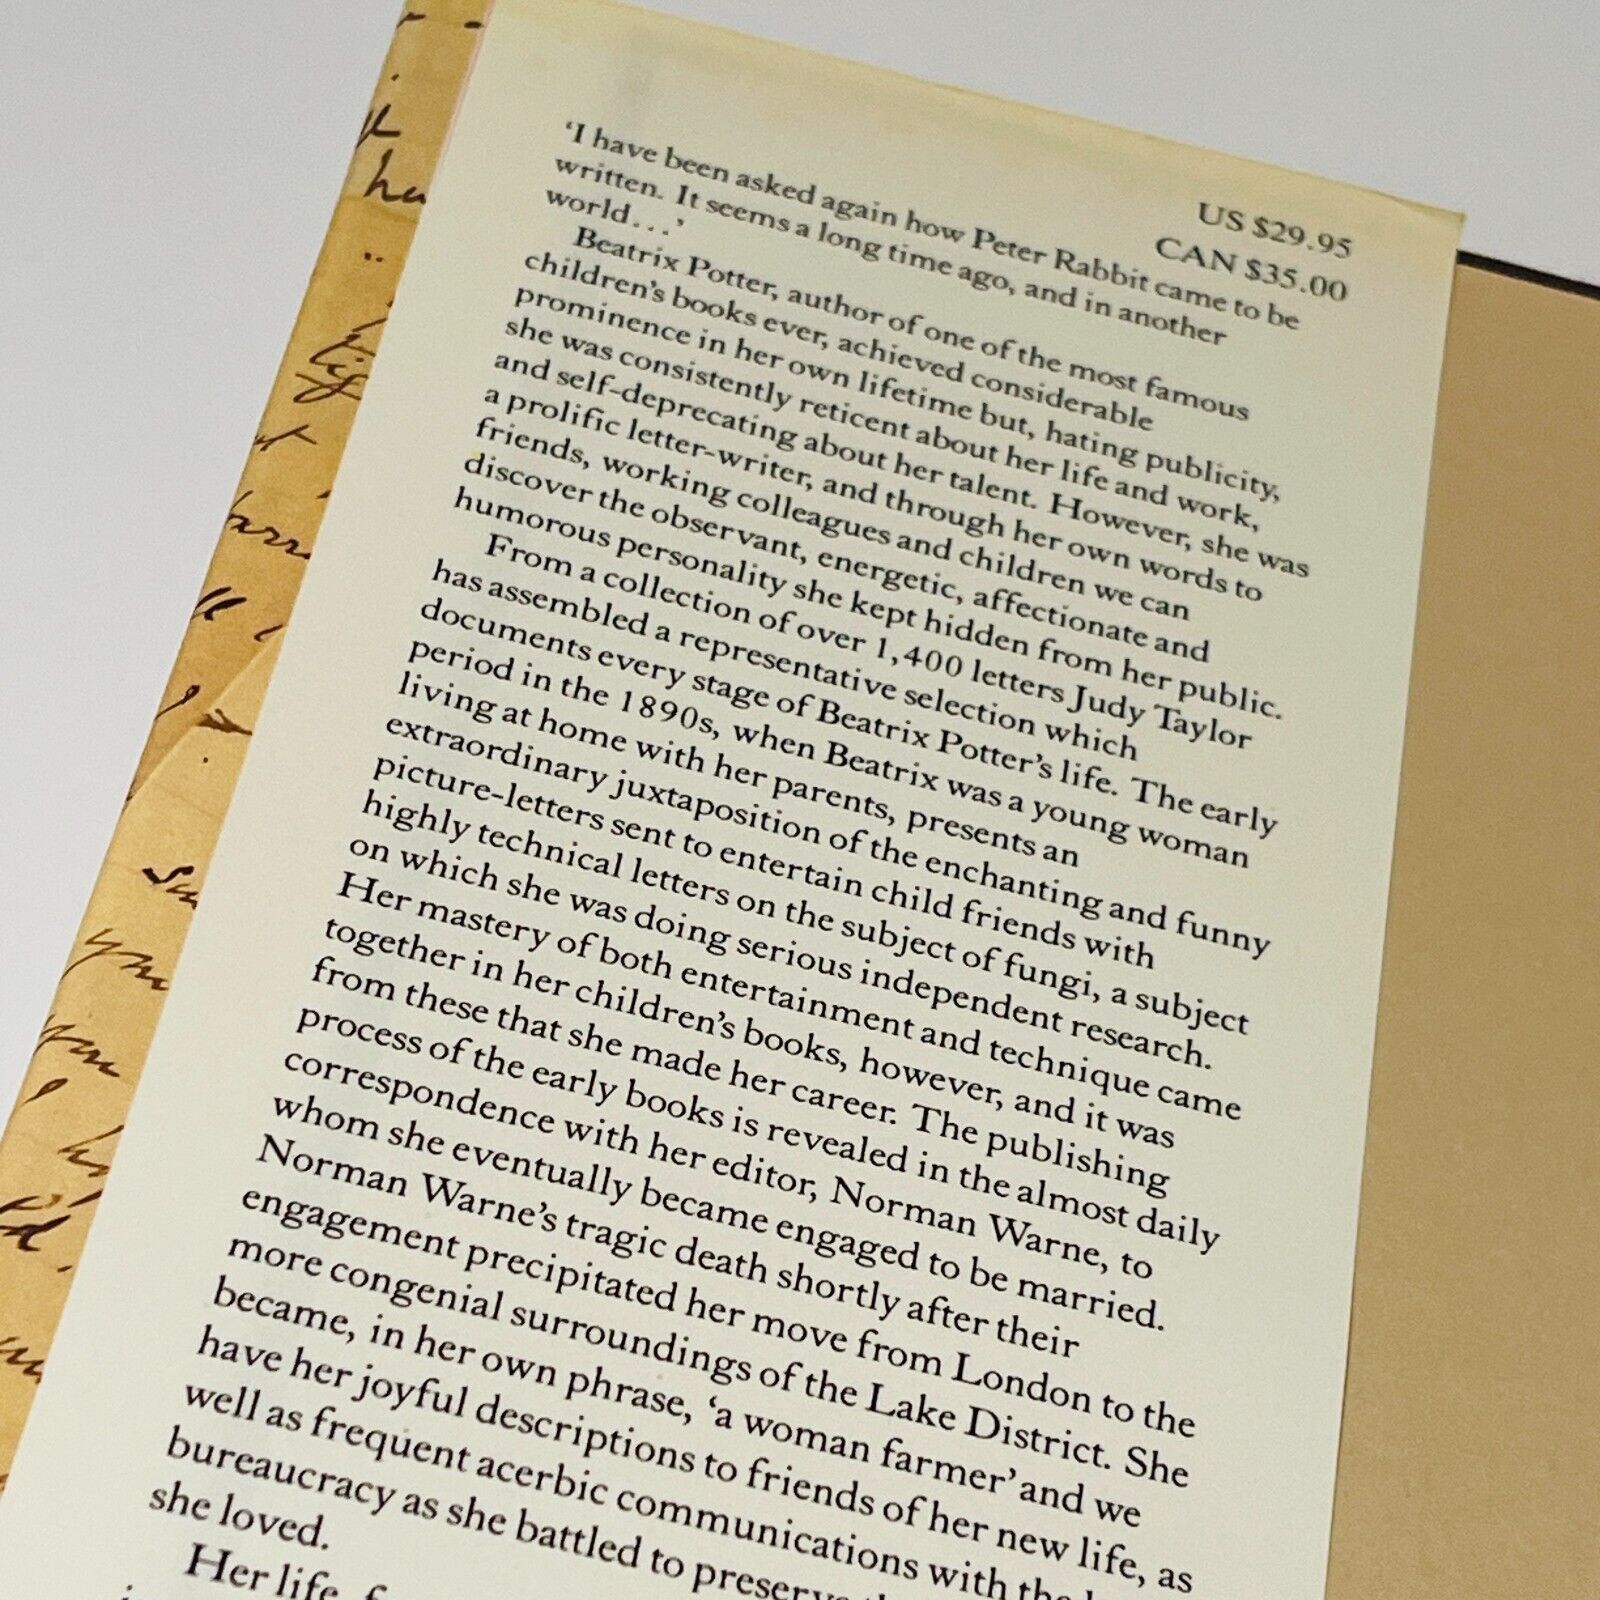 US $29.95
CAN $35.00
‘I have been asked again how Peter Rabbit came to be
written. It seems a long time ago, and in another
world...’
Beatrix Potter, author of one of the most famous
children’s books ever, achieved considerable
prominence in her own lifetime but, hating publicity,
she was consistently reticent about her life and work,
and self-deprecating about her talent. However, she was
a prolific letter-writer, and through her own words to
friends, working colleagues and children we can
discover the observant, energetic, affectionate and
humorous personality she kept hidden from her public.
From a collection of over 1,400 letters Judy Taylor
has assembled a representative selection which
documents every stage of Beatrix Potter’s life. The early
period in the 1890s, when Beatrix was a young woman
living at home with her parents, presents an
extraordinary juxtaposition of the enchanting and funny
picture-letters sent to entertain child friends with
highly technical letters on the subject of fungi, a subject
on which she was doing serious independent research.
Her mastery of both entertainment and technique came
together in her children’s books, however, and it was
from these that she made her career. The publishing
process of the early books is revealed in the almost daily
correspondence with her editor, Norman Warne, to
whom she eventually became engaged to be married.
Norman Warne’s tragic death shortly after their
engagement precipitated her move from London to the
more congenial surroundings of the Lake District. She
became, in her own phrase, ‘a woman farmer’ and we
have her joyful descriptions to friends of her new life, as
well as frequent acerbic communications with the
bureaucracy as she battled to preserve
she loved.
Her life,